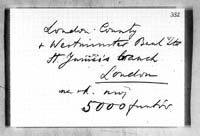 352
London County
& Westminster Bank Ltd
St James's branch
London
5000